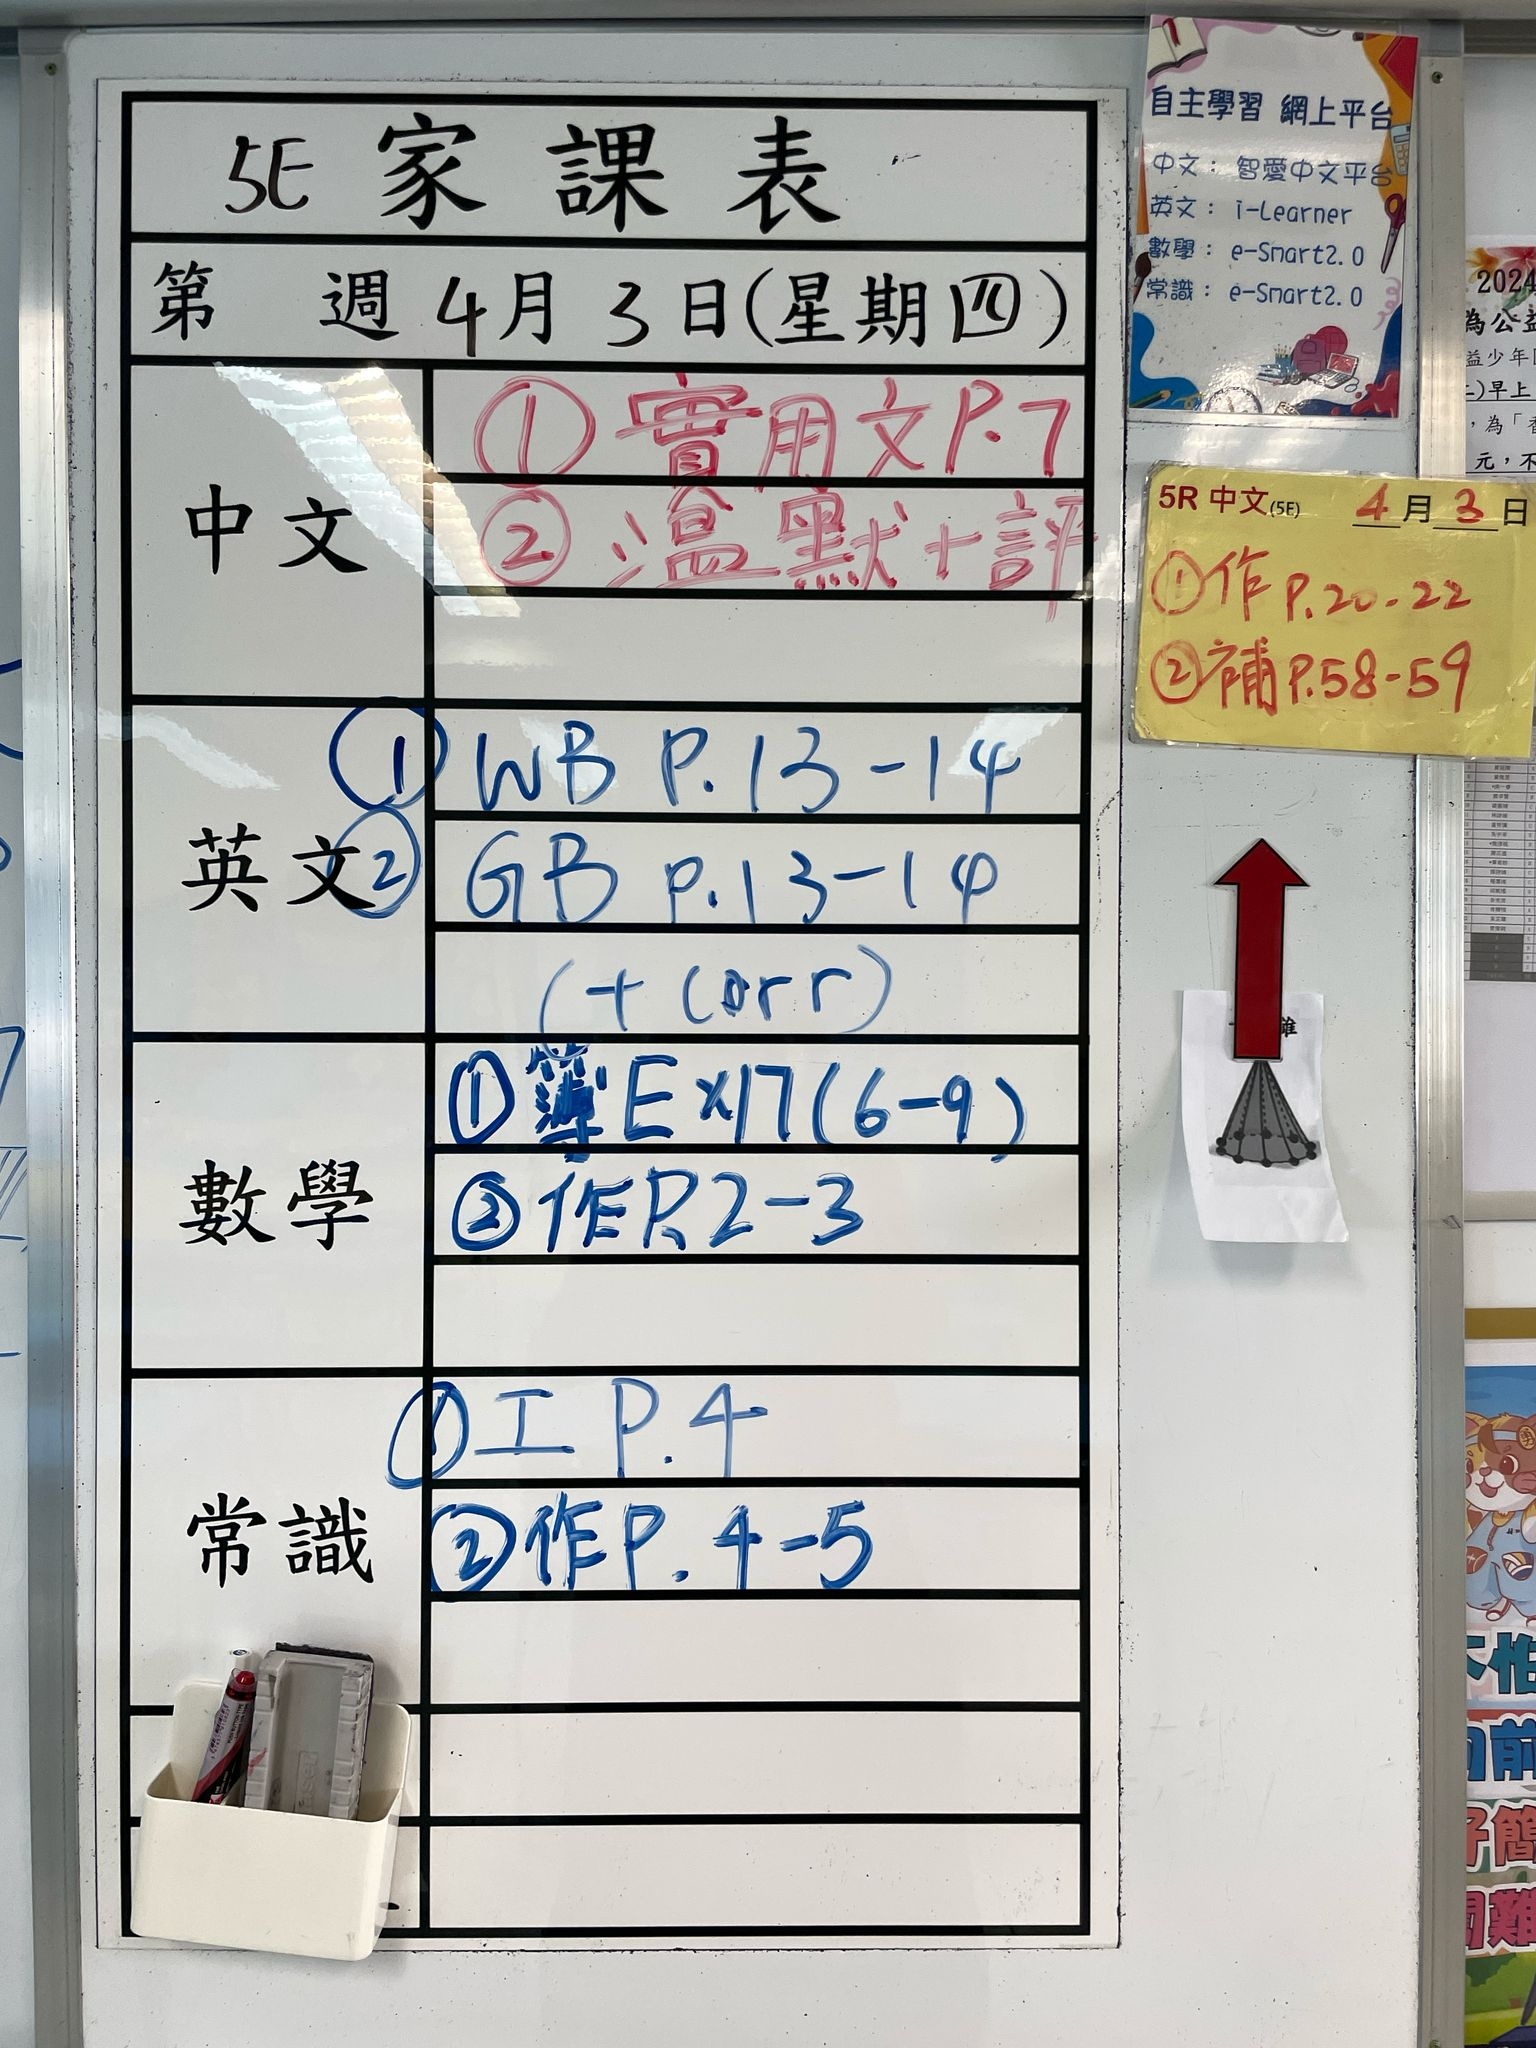 5E 家課表
第 週 4月3日(星期四)
中文
① 實用文P.7
② 溫默+評
英文
① WB P.13-14
② GB p.13-14
(+ corr)
數學
① 簿Ex17(6-9)
② 作P.2-3
常識
① 工 P.4
② 作P.4-5
自主學習 網上平台
中文：智愛中文平台
英文：i-Learner
數學：e-Smart2.0
常識：e-Smart2.0
5R 中文(5E) 4月3日
① 作 P.20-22
② 補 P.58-59
2024
為公益
益少年
)早上
，為「香
元，不
不怕
向前
好簡
困難